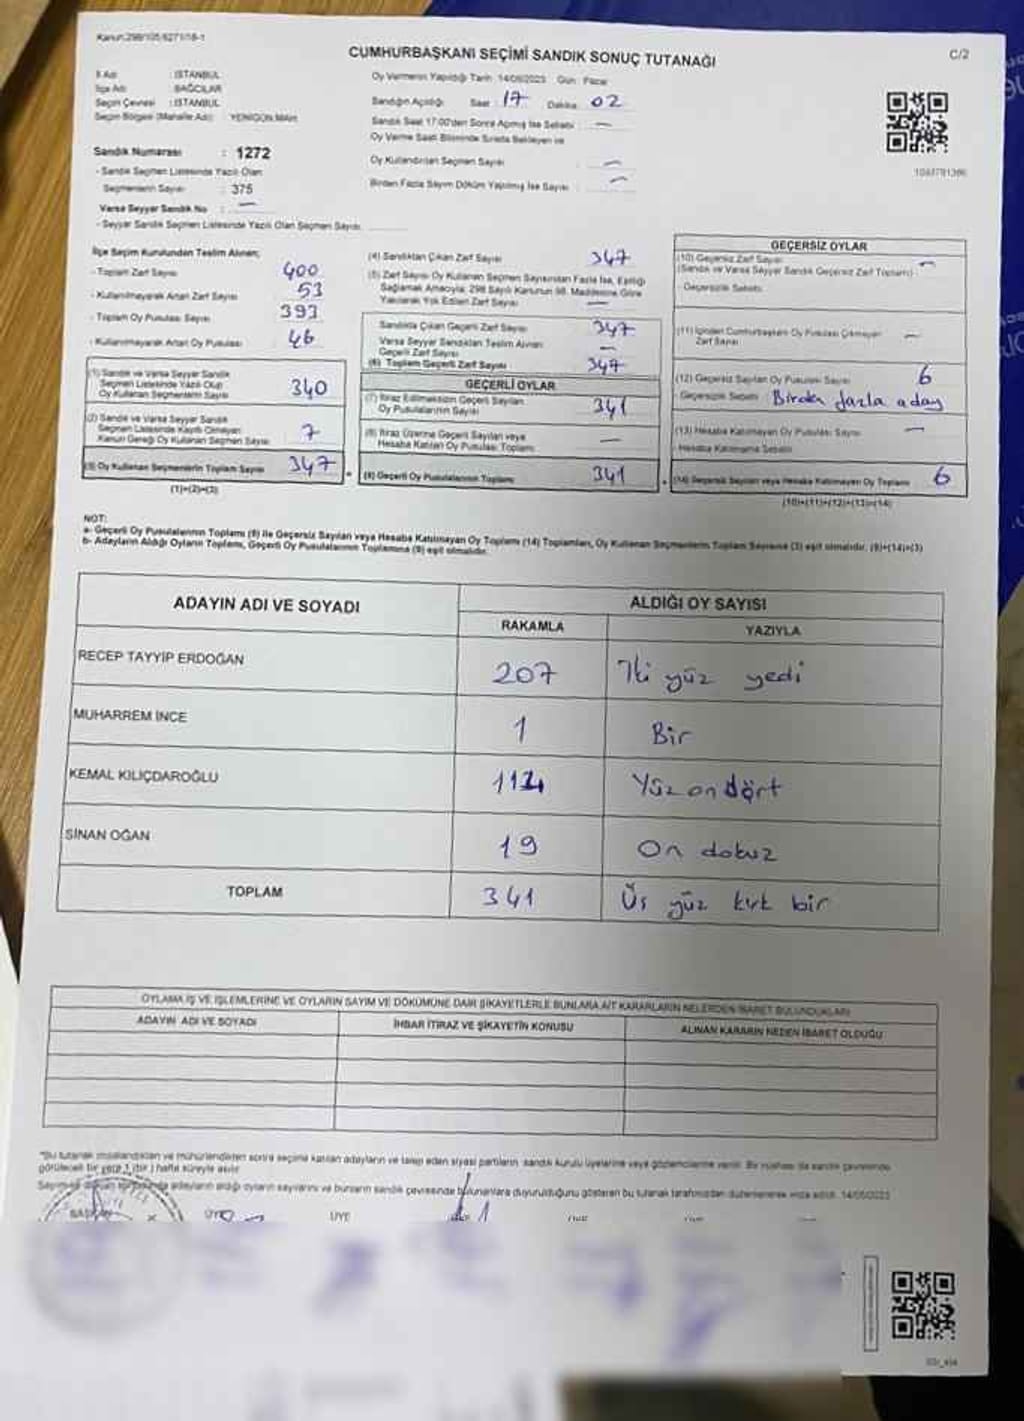 Kanun:298/105.6271/18-1
CUMHURBAŞKANI SEÇİMİ SANDIK SONUÇ TUTANAĞI
C/2
İl Adı : İSTANBUL
İlçe Adı : BAĞCILAR
Seçim Çevresi : İSTANBUL
Seçim Bölgesi (Mahalle Adı) : YENİGÜN MAH.
Oy Vermenin Yapıldığı Tarih 14/05/2023 Gün : Pazar
Sandığın Açıldığı Saat : 17 Dakika : 02
Sandık Saat 17:00'den Sonra Açılmış İse Sebebi : —
Oy Verme Saati Bitiminde Sırada Bekleyen ve
Oy Kullandırılan Seçmen Sayısı : —
Birden Fazla Sayım Döküm Yapılmış İse Sayısı : —
Sandık Numarası : 1272
- Sandık Seçmen Listesinde Yazılı Olan
Seçmenlerin Sayısı : 375
Varsa Seyyar Sandık No : —
- Seyyar Sandık Seçmen Listesinde Yazılı Olan Seçmen Sayısı
İlçe Seçim Kurulundan Teslim Alınan;
- Toplam Zarf Sayısı : 400
- Kullanılmayarak Artan Zarf Sayısı : 53
- Toplam Oy Pusulası Sayısı : 393
- Kullanılmayarak Artan Oy Pusulası : 46
(1) Sandık ve Varsa Seyyar Sandık
Seçmen Listesinde Yazılı Olup
Oy Kullanan Seçmenlerin Sayısı 340
(2) Sandık ve Varsa Seyyar Sandık
Seçmen Listesinde Kayıtlı Olmayan
Kanun Gereği Oy Kullanan Seçmen Sayısı 7
(3) Oy Kullanan Seçmenlerin Toplam Sayısı 347
(1)+(2)=(3)
(4) Sandıktan Çıkan Zarf Sayısı : 347
(5) Zarf Sayısı Oy Kullanan Seçmen Sayısından Fazla İse, Eşitliği
Sağlamak Amacıyla; 298 Sayılı Kanunun 98. Maddesine Göre
Yakılarak Yok Edilen Zarf Sayısı : —
Sandıkta Çıkan Geçerli Zarf Sayısı : 347
Varsa Seyyar Sandıktan Teslim Alınan
Geçerli Zarf Sayısı : —
(6) Toplam Geçerli Zarf Sayısı : 347
GEÇERLİ OYLAR
(7) İtiraz Edilmeksizin Geçerli Sayılan
Oy Pusulalarının Sayısı 341
(8) İtiraz Üzerine Geçerli Sayılan veya
Hesaba Katılan Oy Pusulası Toplamı —
(9) Geçerli Oy Pusulalarının Toplamı 341
GEÇERSİZ OYLAR
(10) Geçersiz Zarf Sayısı —
(Sandık ve Varsa Seyyar Sandık Geçersiz Zarf Toplamı)
- Geçersizlik Sebebi :
(11) İçinden Cumhurbaşkanı Oy Pusulası Çıkmayan
Zarf Sayısı —
(12) Geçersiz Sayılan Oy Pusulası Sayısı 6
- Geçersizlik Sebebi Birden fazla aday
(13) Hesaba Katılmayan Oy Pusulası Sayısı —
- Hesaba Katılmama Sebebi
(14) Geçersiz Sayılan veya Hesaba Katılmayan Oy Toplamı 6
(10)+(11)+(12)+(13)=(14)
NOT:
a- Geçerli Oy Pusulalarının Toplamı (9) ile Geçersiz Sayılan veya Hesaba Katılmayan Oy Toplamı (14) Toplamları, Oy Kullanan Seçmenlerin Toplam Sayısına (3) eşit olmalıdır. (9)+(14)=(3)
b- Adayların Aldığı Oyların Toplamı, Geçerli Oy Pusulalarının Toplamına (9) eşit olmalıdır.
ADAYIN ADI VE SOYADI
ALDIĞI OY SAYISI
RAKAMLA
YAZIYLA
RECEP TAYYİP ERDOĞAN 207 İki yüz yedi
MUHARREM İNCE 1 Bir
KEMAL KILIÇDAROĞLU 114 Yüz on dört
SİNAN OĞAN 19 On dokuz
TOPLAM 341 Üç yüz kırk bir
OYLAMA İŞ VE İŞLEMLERİNE VE OYLARIN SAYIM VE DÖKÜMÜNE DAİR ŞİKAYETLERLE BUNLARA AİT KARARLARIN NELERDEN İBARET BULUNDUKLARI
ADAYIN ADI VE SOYADI
İHBAR İTİRAZ VE ŞİKAYETİN KONUSU
ALINAN KARARIN NEDEN İBARET OLDUĞU
*Bu tutanak imzalandıktan ve mühürlendikten sonra seçime katılan adayların ve talep eden siyasi partilerin sandık kurulu üyelerine veya gözlemcilerine verilir. Bir nüshası da sandık çevresinde
görülecek bir yere 1 (bir) hafta süreyle asılır.
adayların aldığı oyların sayılarını ve bunların sandık çevresinde bulunanlara duyurulduğunu gösteren bu tutanak tarafımızdan düzenlenerek imza edildi. 14/05/2023
BAŞKAN
ÜYE
ÜYE